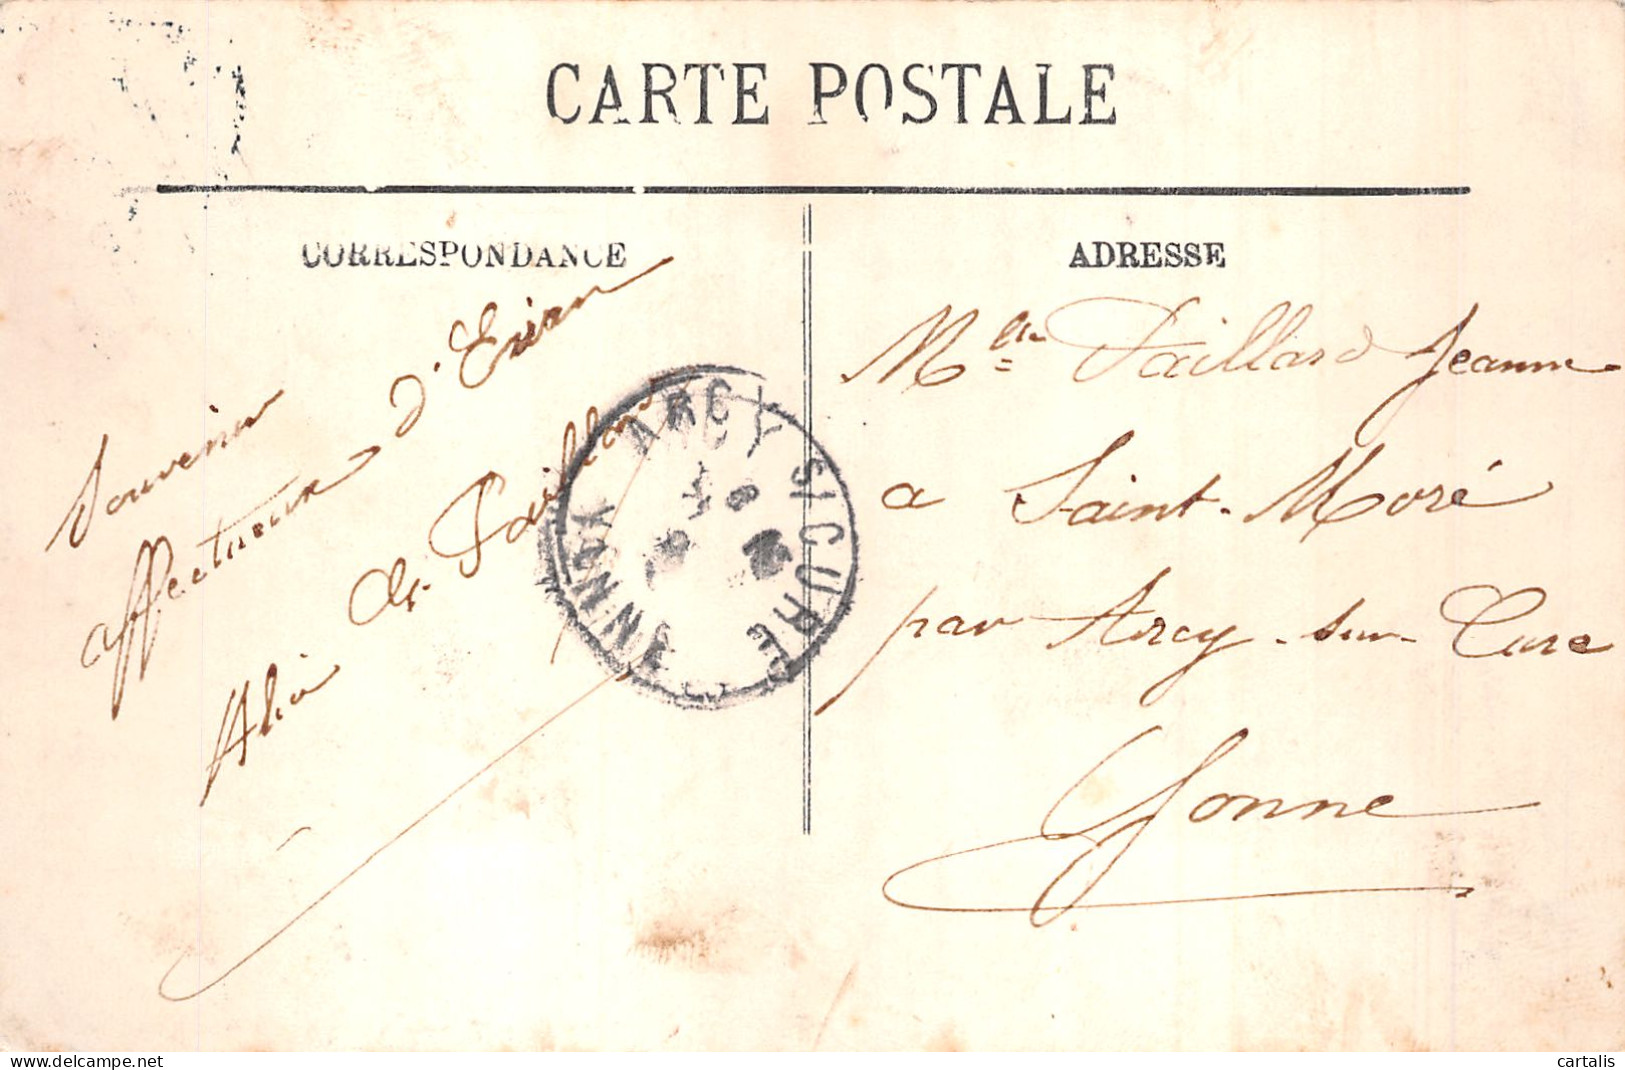 CARTE POSTALE
CORRESPONDANCE
Souvenir
affectueux d'Evian
de Paillard
ADRESSE
Mlle Paillard Jeanne
a Saint-Moré
par Arcy-sur-Cure
Yonne
ARCY S/ CURE
YONNE
www.delcampe.net
cartalis